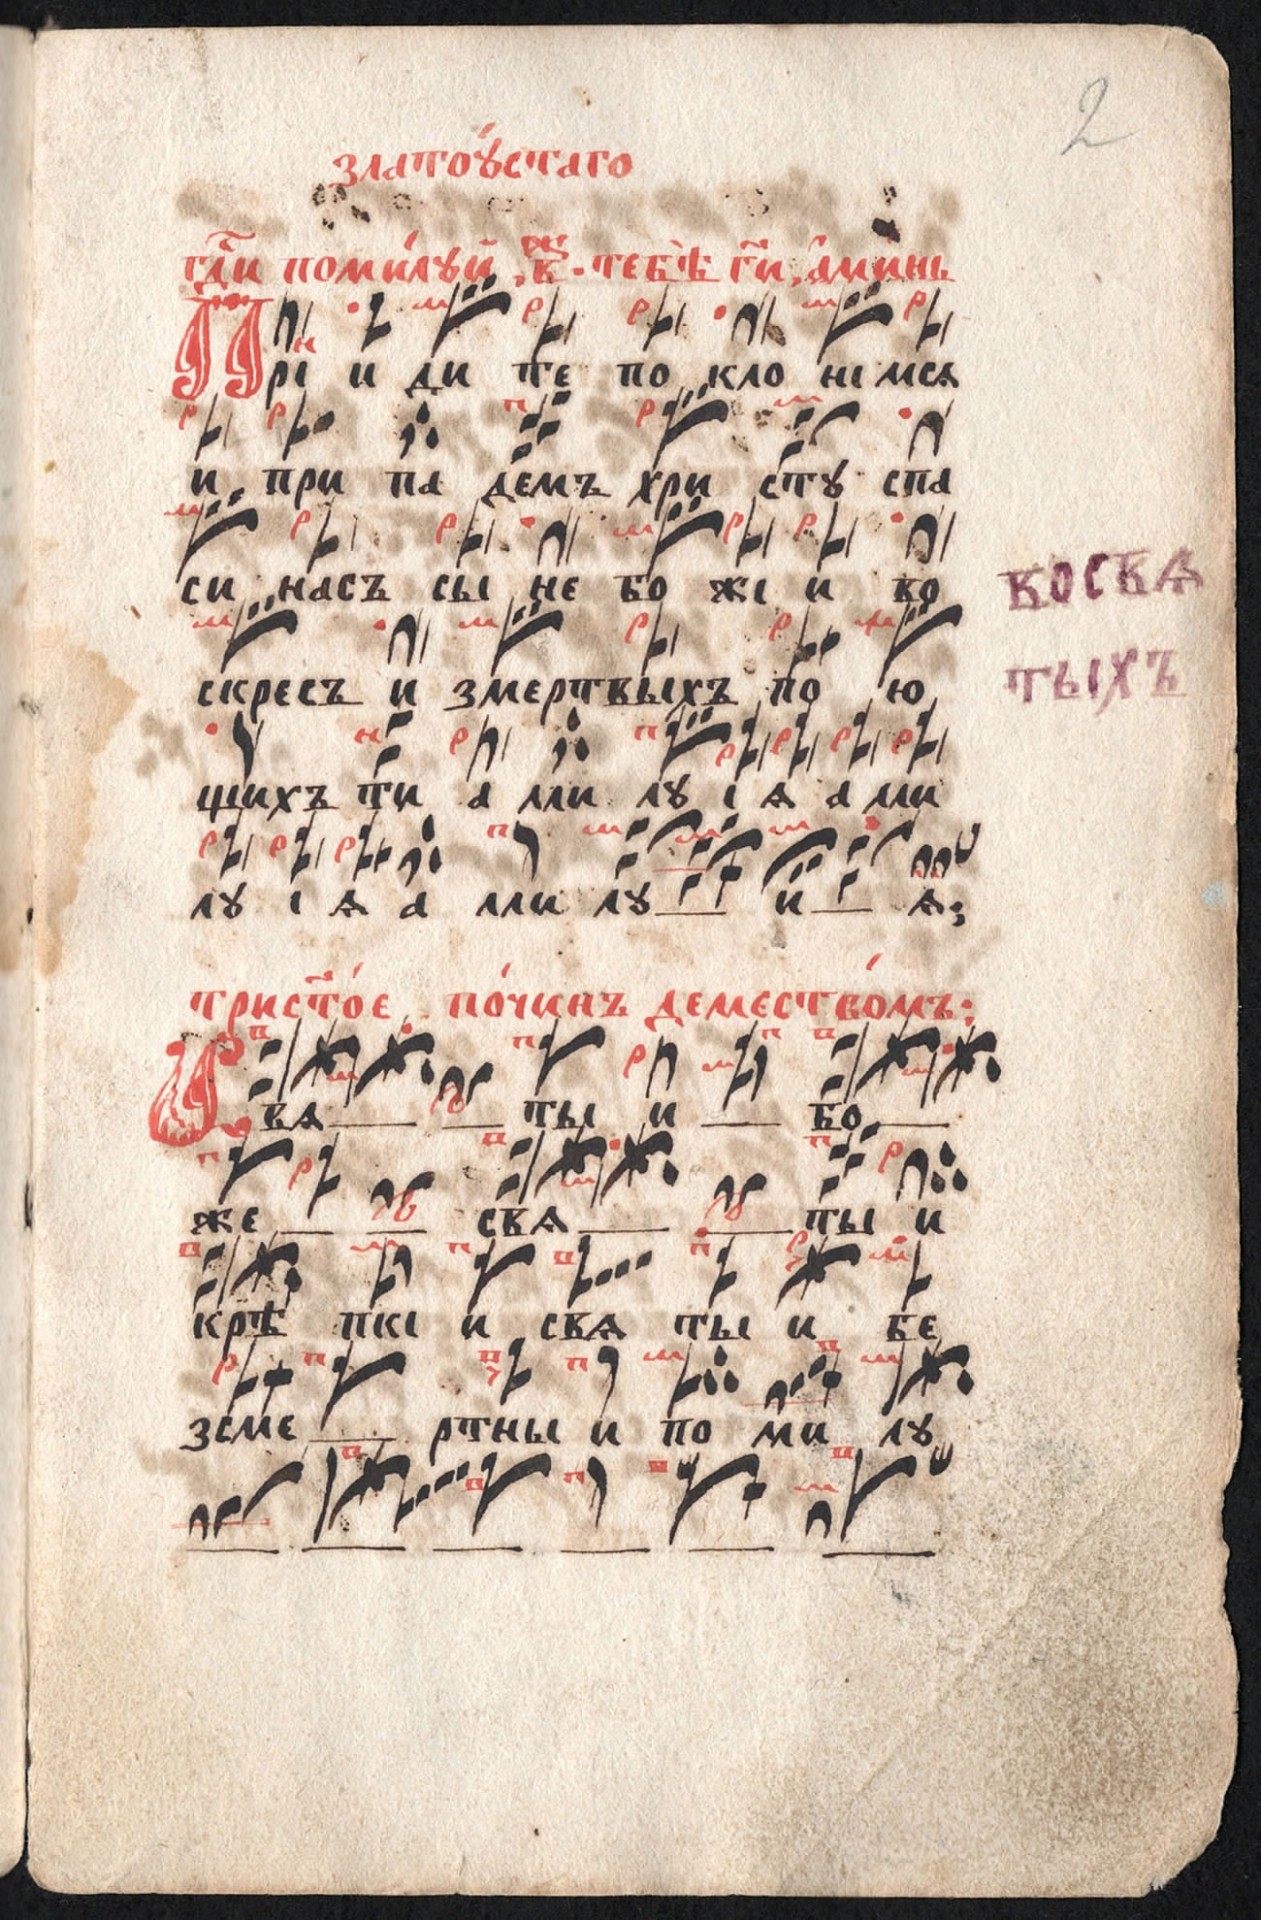 2
златоꙋ́стаго
гд҃и поми́лꙋй, к҃. тебѣ̀ г҃и, а҆ми́нь
Прі и ди те по кло ні мся
и при па демъ хри стꙋ спа
си насъ сы не бо жі и во
скресъ и змертвыхъ по ю
восвѧ
тыхъ
щихъ ти а лли лꙋ і ѧ а лли
лꙋ і ѧ а лли лꙋ и ѧ;
трист҃о́е по́чинъ демество́мъ:
Свѧ ты и бо
же свѧ ты и
крѣ пкі и свѧ ты и бе
зсме ртны и по ми лꙋ